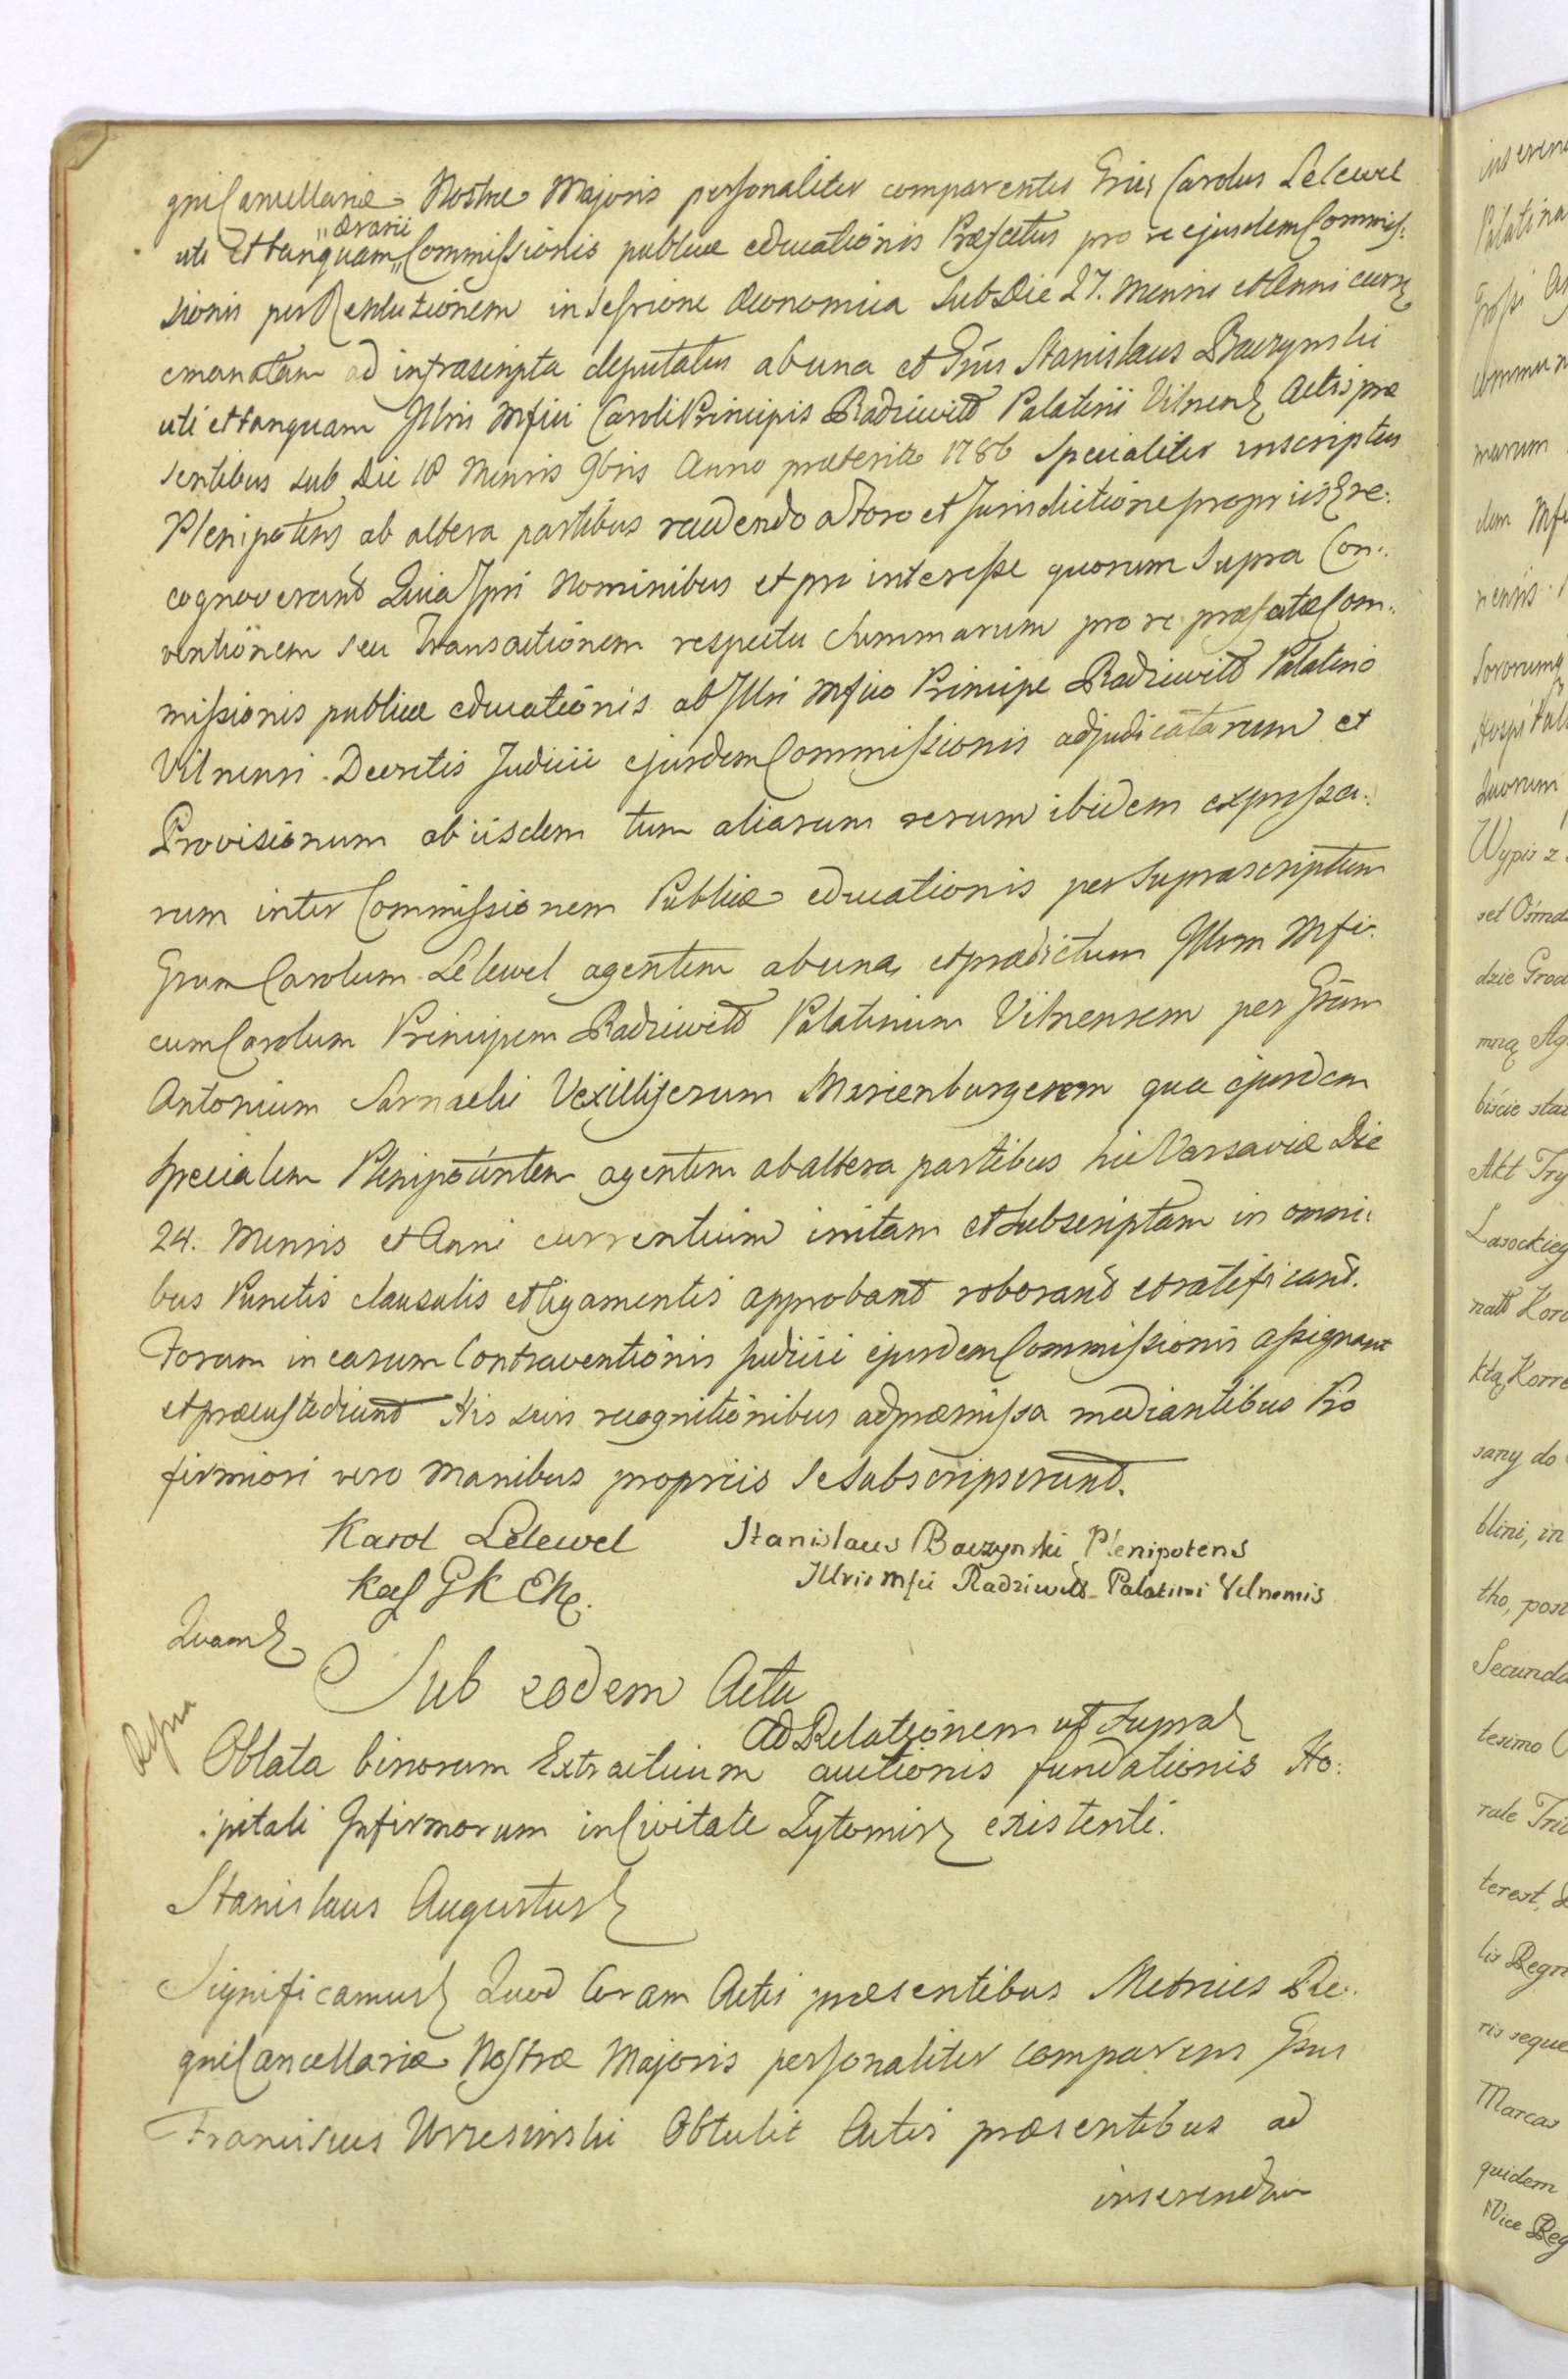 gni Cancellariæ Nostræ Majoris personaliter comparentes Grūs Carolus Lelewel
uti et tanquam „ærarii„ Commissionis publicæ educationis Præfectus pro re ejusdem Commis:
sionis per Resolutionem in Sessione Œconomica Sub Die 27. Mensis et Anni curr
emanatam ad infrascripta deputatus ab una et Grūs Stanislaus Baczynski
uti et tanquam Jllris Mfici Caroli Principis Radziwiłł Palatini Vilnens Actis præ
sentibus sub Die 18 Mensis 9bris Anno præterito 1786 Specialiter inscriptus
Plenipotens ab altera partibus recedendo a Foro et Jurisdictione propriis Re:
cognoverunt Quia Ipsi Nominibus et pro interesse quorum Supra Con:
ventionem seu Transactionem respectu Summarum pro re præfatæ Com:
missionis publicæ educationis ab Jllri Mfico Principe Radziwiłł Palatino
Vilnensi Decretis Judicii ejusdem Commissionis adjudicatarum et
Provisionum ab iisdem tum aliarum rerum ibidem expressa:
rum inter Commissionem Publicæ educationis per Suprascriptum
Grum Carolum Lelewel agentem ab una, et prædictum Jllrem Mfi:
cum Carolum Principem Radziwiłł Palatinum Vilnensem per Grūm
Antonium Sarnacki Vexilliferum Marienburgensem qua ejusdem
Specialem Plenipotentem agentem ab altera partibus hic Varsaviæ Die
24. Mensis et Anni currentium initam et Subscriptam in omni:
bus Punctis clausulis et ligamentis approbant roborant et ratificant.
Forum in casum Contraventionis Judicii ejusdem Commissionis assignant
et præcustodiunt His suis recognitionibus ad præmissa mediantibus Pro
firmiori vero Manibus propriis se Subscripserunt.
Karol Lelewel
Stanislaus Baczynski Plenipotens
Kas G K EN.
Jllris Mfci Radziwiłł Palatini Vilnensis
Quam
Sub eodem Actu
ad Relationem ut Supra
Oblata binorum Extractuum auctionis fundationis Ho:
:pitali Infirmorum in Civitate Zytomirz existenti.
Stanislaus Augustus
Significamus Quod Coram Actis præsentibus Metrices Re:
gni Cancellariæ Nostræ Majoris personaliter comparens Grūs
Franciscus Wrzesinski Obtulit Actis præsentibus ad
inserendum